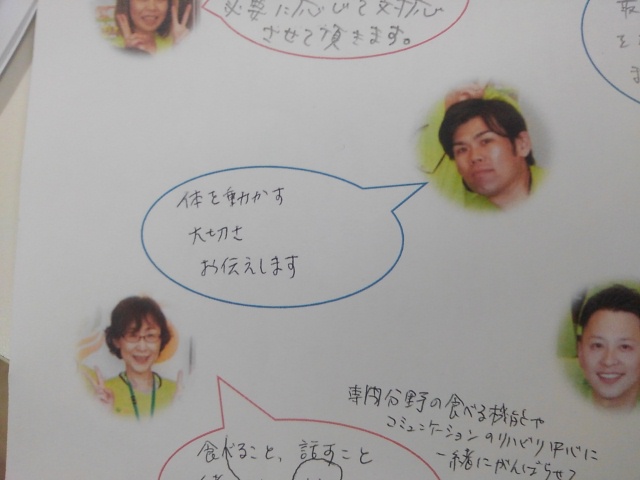 必要に応じて対応
させて頂きます。
体を動かす
大切さ
お伝えします
専門分野の食べる機能や
コミュニケーションのリハビリ中心に
一緒にがんばらせて
食べること、話すこと